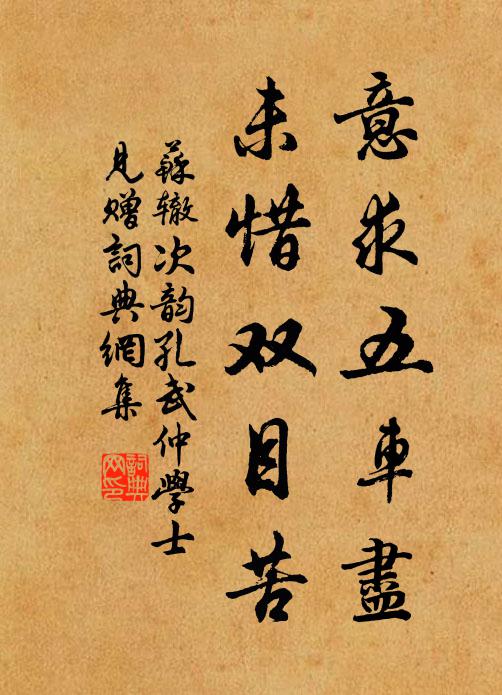 意求五車盡
未惜双目苦
蘇辙次韵孔武仲學士
見贈詞典網集
詞典网印